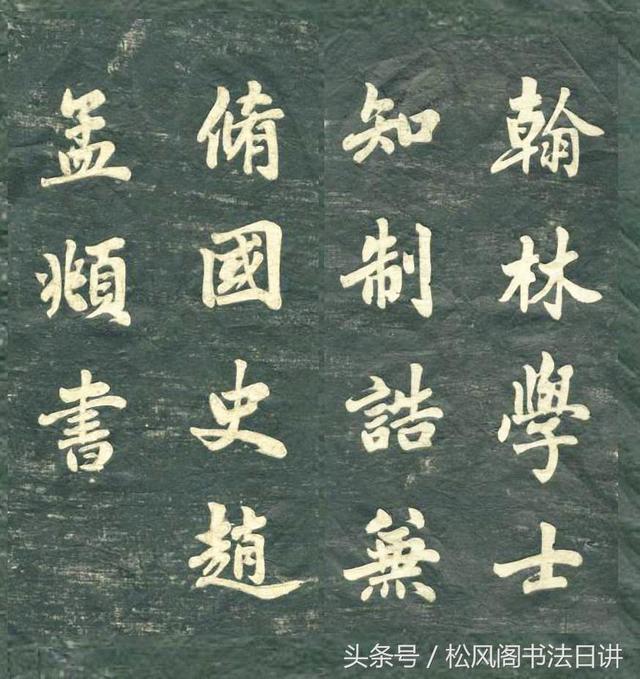 翰林學士
知制誥兼
脩國史趙
孟頫書
头条号 / 松风阁书法日讲